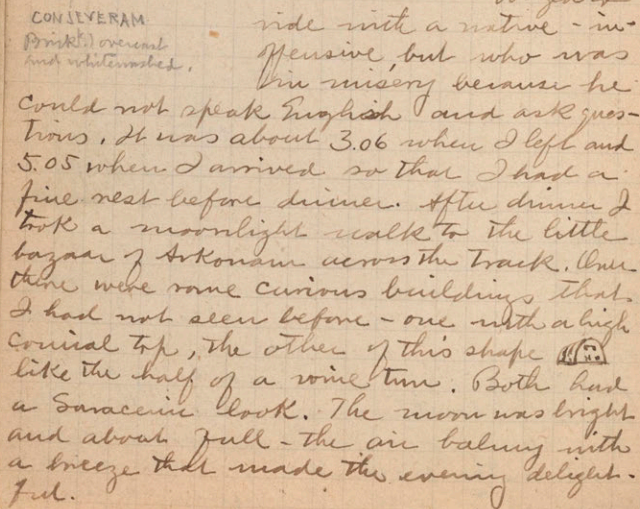 CONJEVERAM
Brick(?) overcast
and whitewashed.
ride with a native - in-
offensive but who was
in misery because he
could not speak English and ask ques-
tions. It was about 3.06 when I left and
5.05 when I arrived so that I had a
fine rest before dinner. After dinner I
took a moonlight walk to the little
bazaar of Arkonam across the track. Over
there were some curious buildings that
I had not seen before - one with a high
conical top, the other of this shape
like the half of a wine tun. Both had
a Saracenic look. The moon was bright
and about full - the air balmy with
a breeze that made the evening delight-
ful.